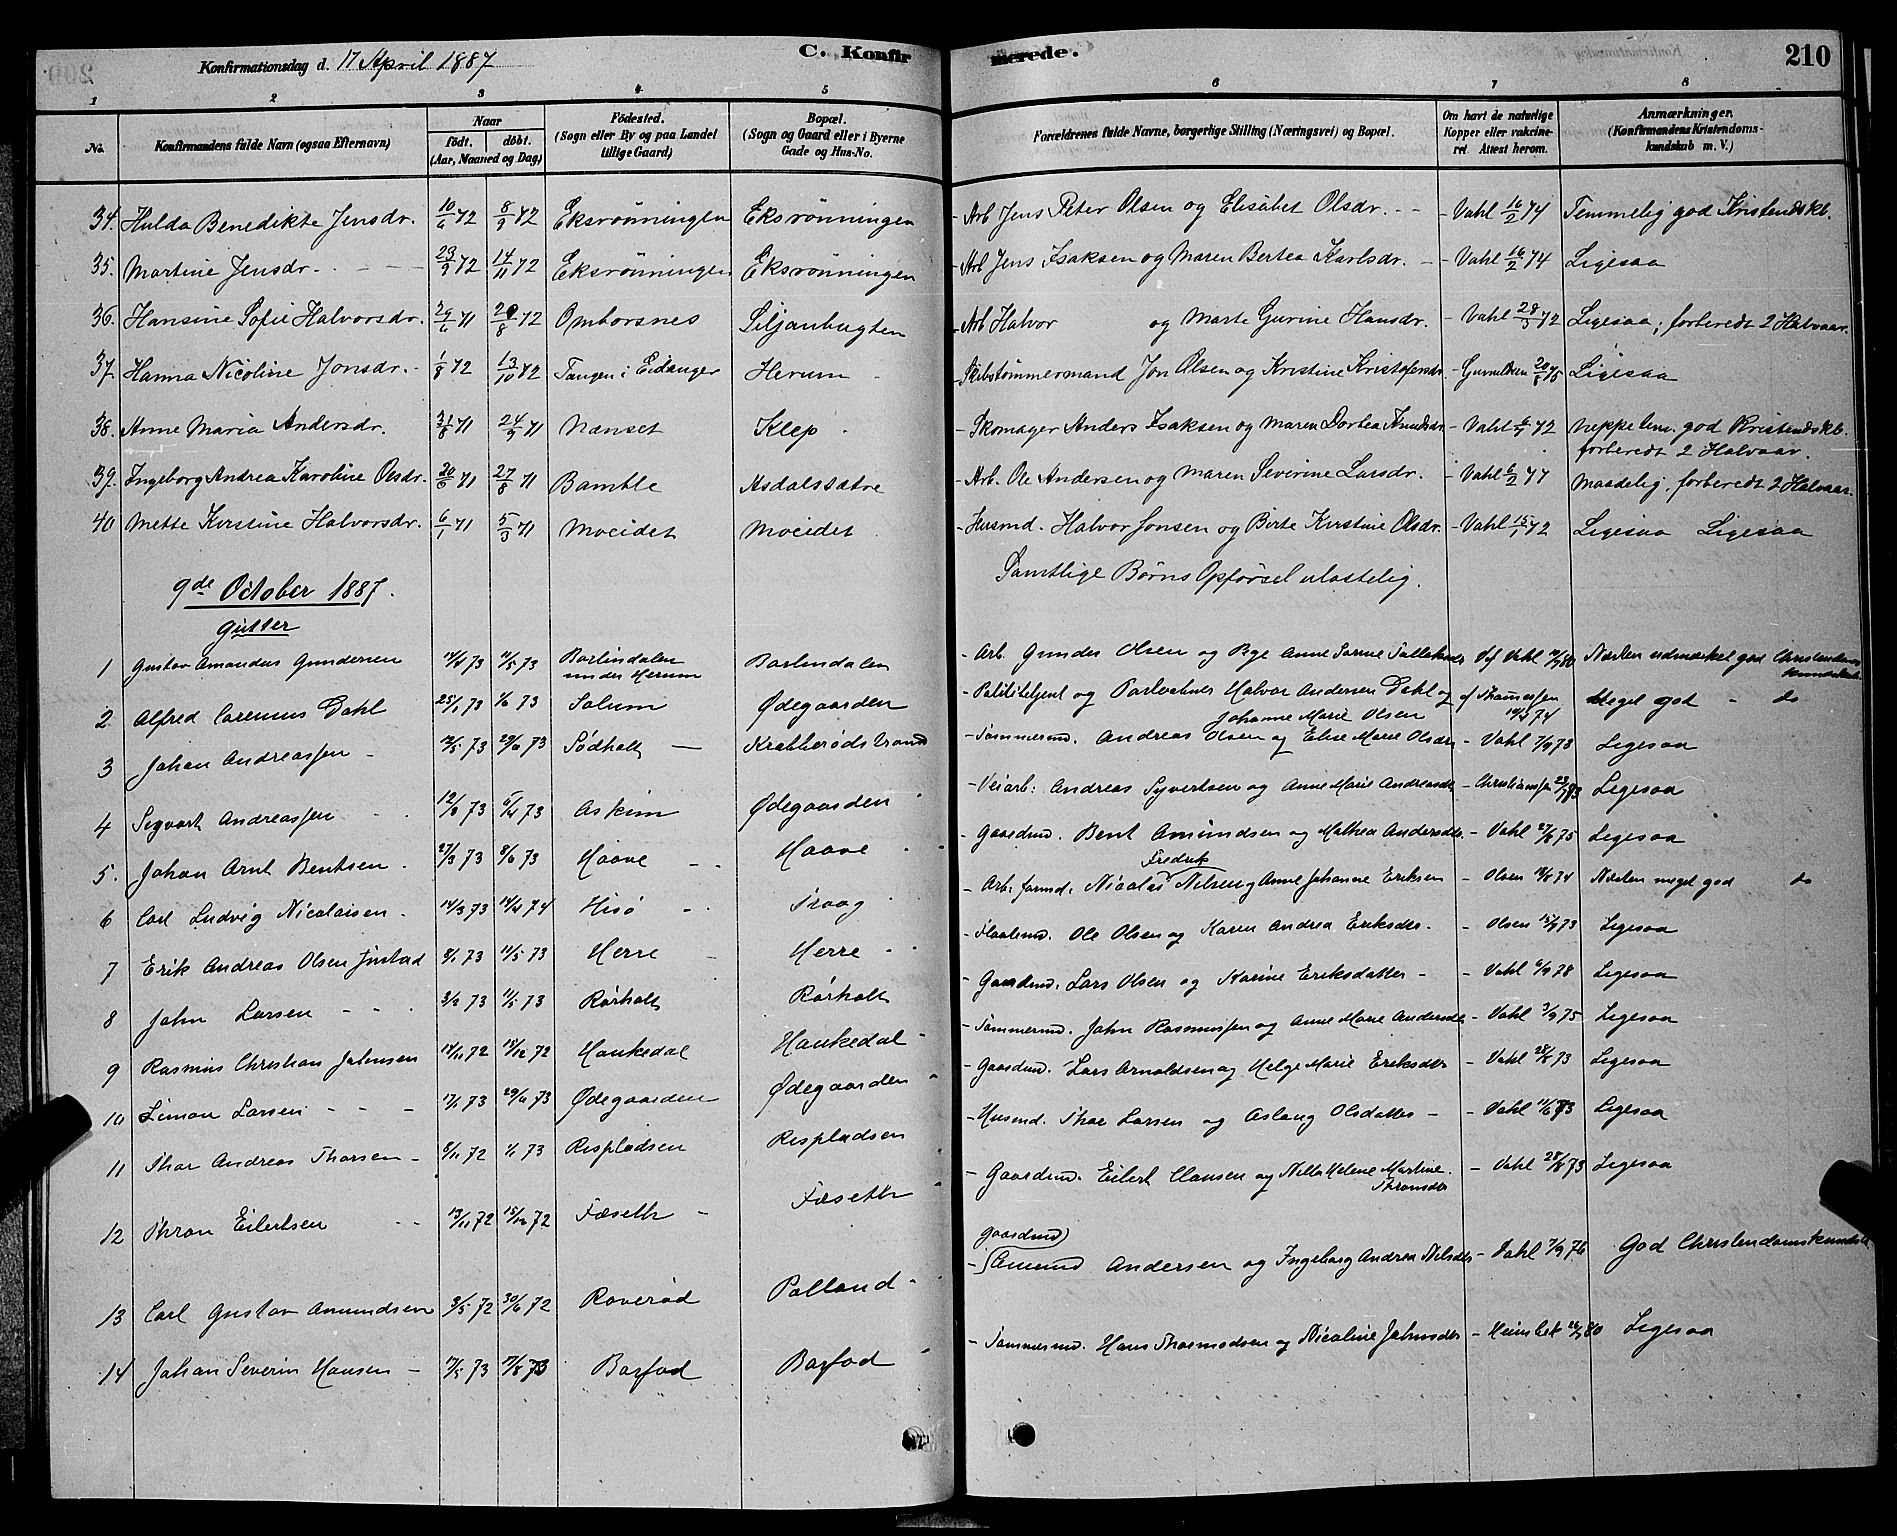 Konfirmationsdag d. 17 April 1887
C. Konfir
merede.
210
1 2 3 4 5 6 7 8
No.
Konfirmandens fulde Navn (ogsaa Efternavn)
Naar
født. døbt.
(Aar, Maaned og Dag)
Fødested.
(Sogn eller By og paa Landet
tillige Gaard)
Bopæl.
(Sogn og Gaard eller i Byerne
Gade og Hus-No.
Forældrenes fulde Navne, borgerlige Stilling (Næringsvei) og Bopæl.
Om havt de naturlige
Kopper eller vakcine-
ret Attest herom.
Anmærkninger.
(Konfirmandens Kristendoms-
kundskab m. V.)
34. Hulda Benedikte Jensdr. 10/6 72 8/9 72 Eksrønningen Eksrønningen - Arb Jens Peter Olsen og Elisabet Olsdr. - - Vahl 16/2 74 Temmelig god Kristendskb.
35. Martine Jensdr. 23/9 72 17/11 72 Eksrønningen Eksrønningen - Arb Jens Isaksen og Maren Bertea Karlsdr. - Vahl 16/2 74 Ligesaa
36. Hansine Sofie Halvorsdr. 29/6 71 20/8 72 Omborsnes Siljanbugten - Arb Halvor og Marte Gurine Hansdr. - Vahl 28/5 72 Ligesaa; forberedt 2 Halvaar.
37. Hanna Nicoline Jonsdr. 1/8 72 13/10 72 Tangen i Eidanger Herum - Skibstømmermand Jon Olsen og Kristine Kristofersdr. 20/8 75 Ligesaa
38. Anne Maria Andersdr. 31/8 71 24/9 71 Nenset Klep - Skomager Anders Isaksen og Maren Dortea Knudsdr. - Vahl 72 neppe tem. god Kristendskb.
forberedt 2 Halvaar.
39. Ingeborg Andrea Karoline Olsdr. 20/6 71 27/8 71 Bamble Asdalssætre - Arb. Ole Andersen og Maren Severine Larsdr. - Vahl 6/2 77 Maadelig, forberedt 2 Halvaar.
40 Mette Kirstine Halvorsdr. 6/1 71 5/3 71 Moeidet Moeidet - Husmd. Halvor Jonsen og Birte Kirstine Olsdr. - Vahl 15/1 72 Ligesaa Ligesaa
Samtlige Børns Opførsel ulastelig.
9de October 1887.
Gutter
1 Gustav Amandus Gundersen 73 11/5 73 Barlindalen
under Herum Barlindalen - Arb. Gunder Olsen og Anne Sarine - Vahl 80 Næsten udmærket god Christendoms
kundskab
2 Alfred Carenius Dahl 25/1 73 1/6 73 Solum Ødegaarden - Politibetjent og Halvor Andersen Dahl og
Johanne Marie Olsen 74 Meget god - do
3 Johan Andreassen - 12/5 73 29/6 73 Sødholt - Krabberødstrand - Tømmermd. Andreas Olsen og Elise Marie Olsdr - Vahl 7/9 78 Ligesaa
4 Sigvart Andreassen 12/8 73 73 Askim Ødegaarden - Veiarb: Andreas Syvertsen og Anne Marie Andreasdr - Christiansen 83 Ligesaa
5. Johan Arnt Bentsen. 27/3 73 8/6 73 Haave Haave - Gaardmd. Bent Amundsen og Mathea Andersdr. - Vahl 27/8 75 Ligesaa
6 Carl Ludvig Nicolaisen. 14/3 73 14/4 74 Hisø Traag - Arb. formd. Nicolai Fredrik Nilsen og Anne Johanne Eriksen - Olsen 74 Næsten meget god do
7 Erik Andreas Olsen 8/1 73 11/5 73 Herre Herre - Fløtermd. Ole Olsen og Karen Andrea Eriksdr. - Olsen 15/9 73 Ligesaa
8 John Larsen 3/2 73 11/5 73 Rørholt Rørholt - Gaardmd. Lars Olsen og Karine Eriksdatter - - Vahl 6/9 78 Ligesaa
9 Rasmus Christian Johnsen 14/11 72 15/12 72 Haukedal Haukedal - Tømmermd. John Rasmussen og Anne Marie Andersdr - Vahl 3/9 75 Ligesaa
10 Simon Larsen 17/1 73 29/6 73 Ødegaarden Ødegaarden - Gaardmd. Lars Arnoldsen og Helge Marie Eriksdtr - Vahl 28/8 73 Ligesaa
11 Thor Andreas Thorsen - 8/11 72 1/1 73 Respladsen Respladsen - Husmd. Thor Larsen og Aslaug Olsdatter - - Vahl 11/6 73 Ligesaa
12 Thron Eilertsen 13/11 72 15/12 72 Fæseth - Fæseth - Gaardmd. Eilert Hansen og Nilla Helene Martine
Thronsdtr - Vahl 28/8 73 Ligesaa
13 Carl Gustav Amundsen 3/5 72 30/6 72 Roverød Palland - Gaardmd
Amund Andersen og Ingeborg Andrea Nilsdtr - Vahl 7/9 76 God Christendomskundsk.
14 Johan Severin Hansen - 17/5 73 17/8 73 Barfod Barfod - Tømmermd. Hans Thormodsen og Nicoline Johnsdtr - Heimbek 80 Ligesaa